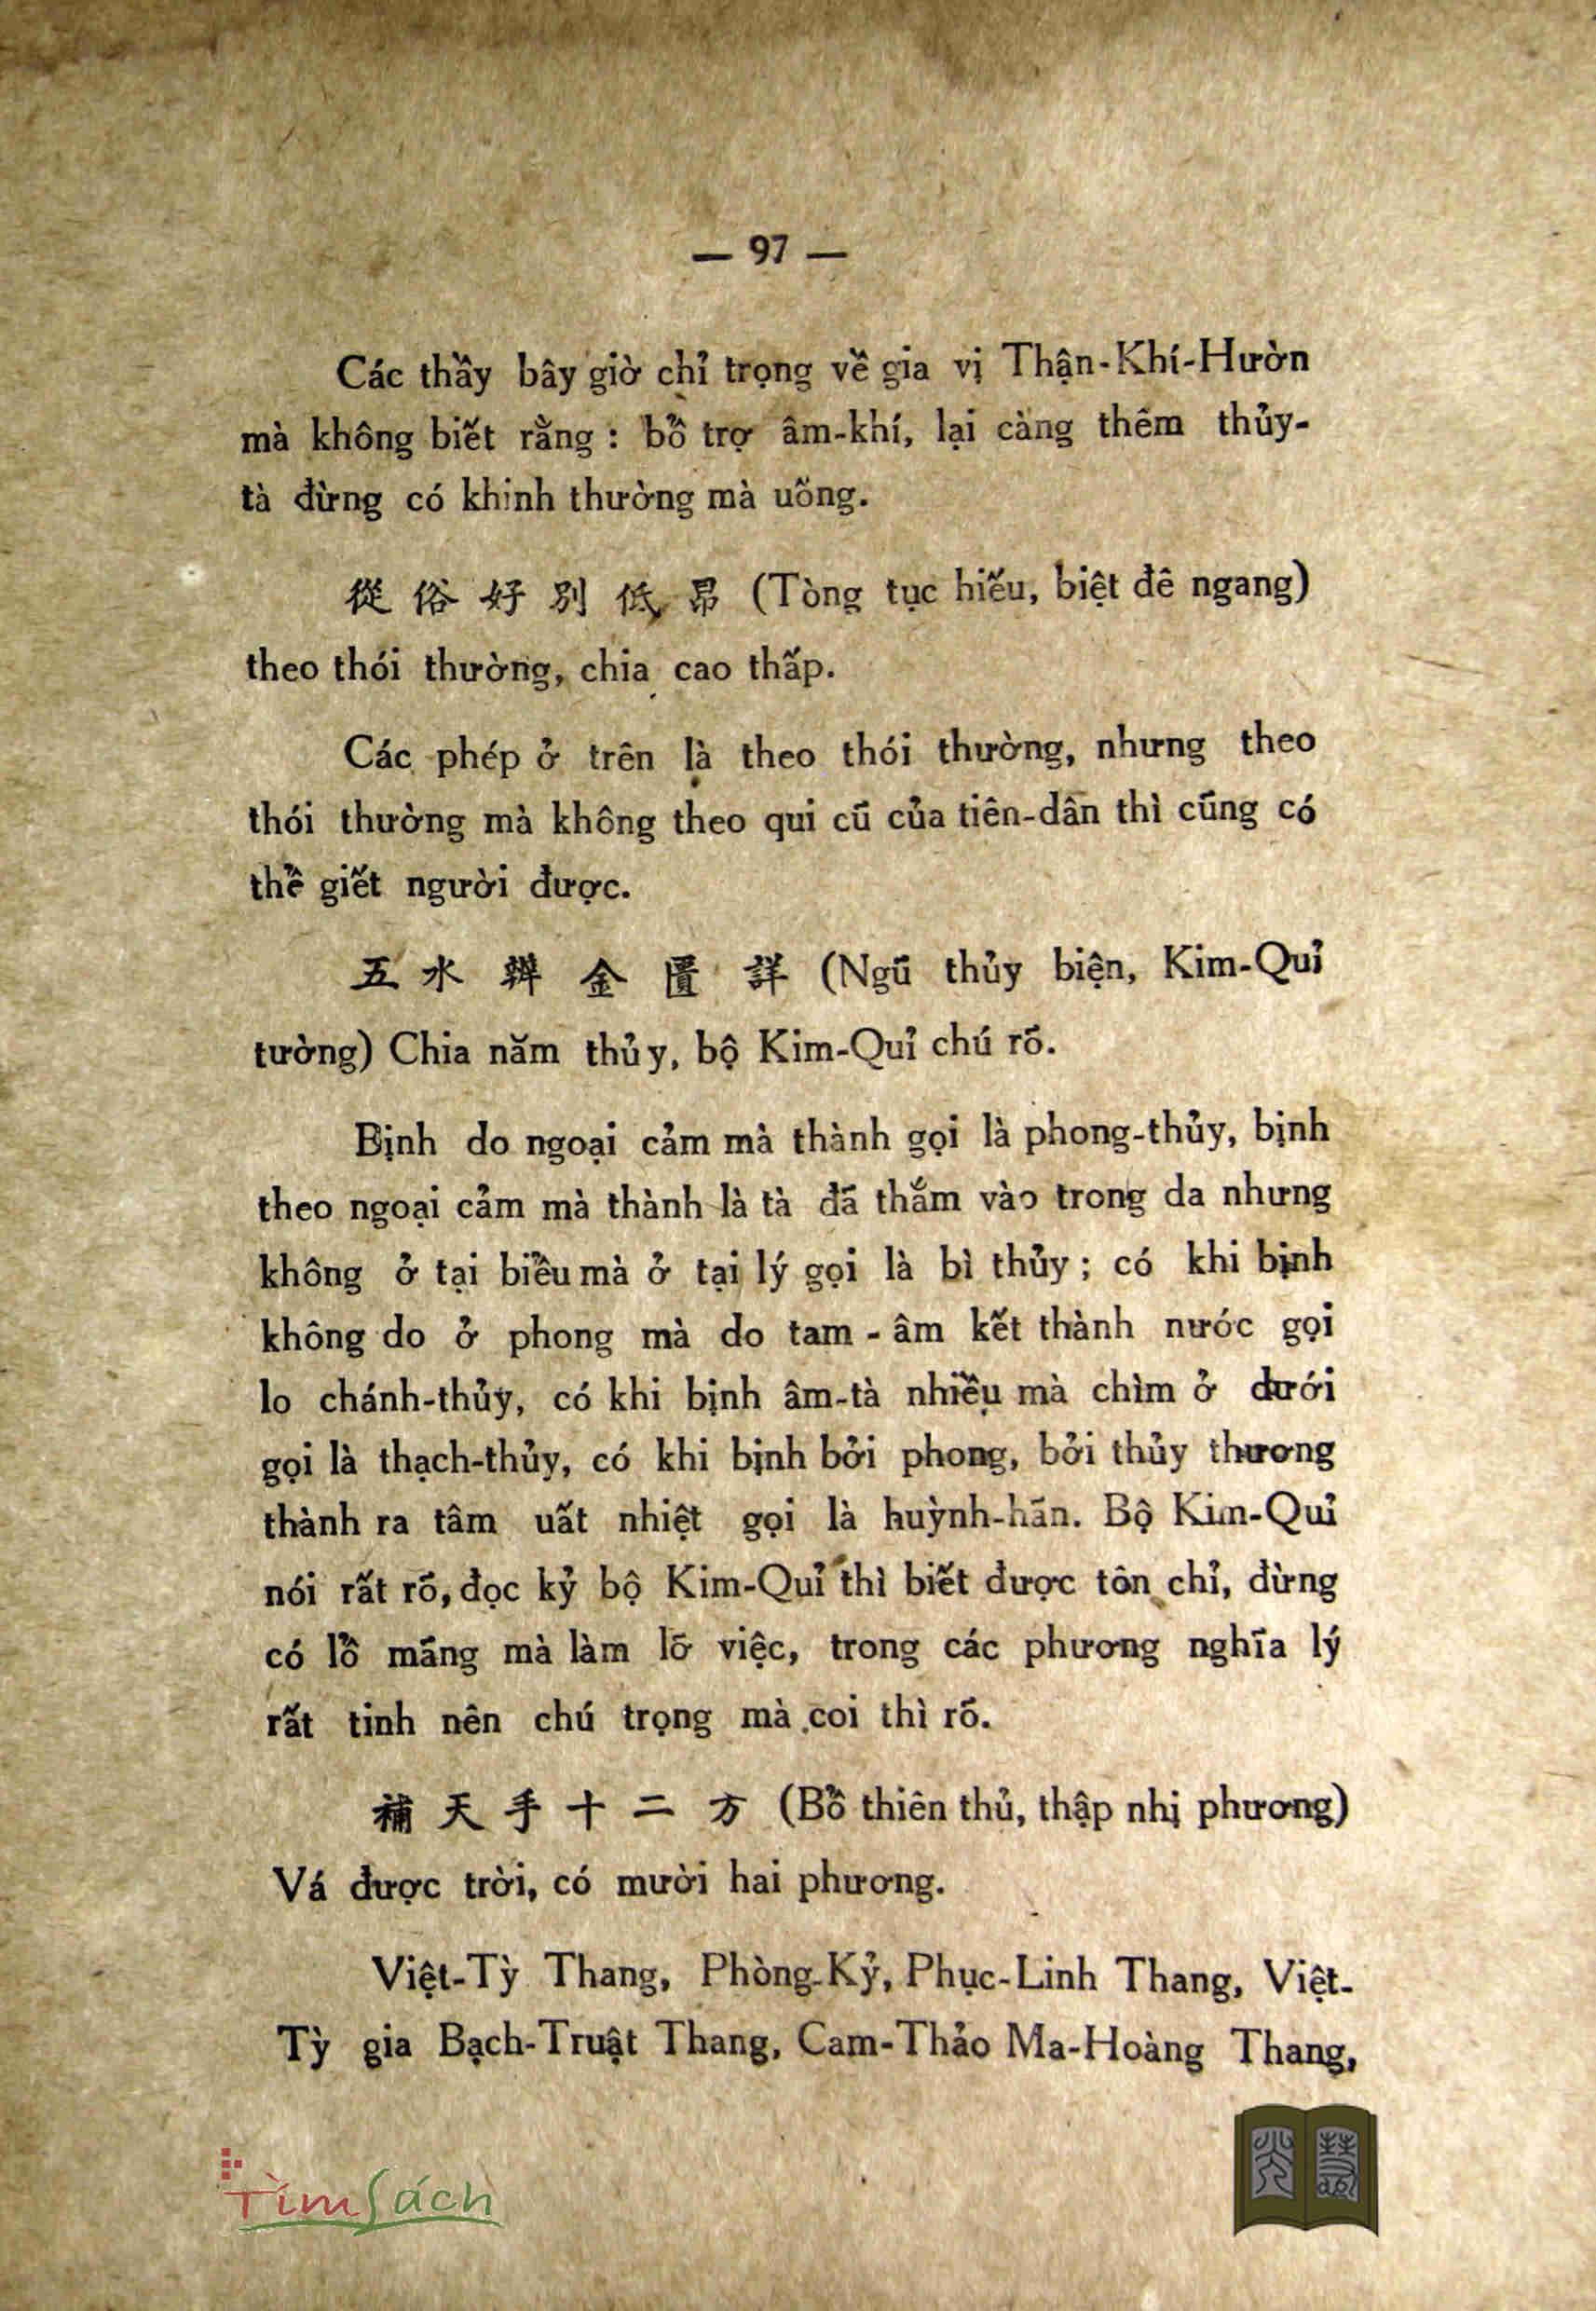 — 97 —
Các thầy bây giờ chỉ trọng về gia vị Thận-Khí-Hườn
mà không biết rằng : bổ trợ âm-khí, lại càng thêm thủy-
tà đừng có khinh thường mà uống.
從俗好別低昂 (Tòng tục hiếu, biệt đê ngang)
theo thói thường, chia cao thấp.
Các phép ở trên là theo thói thường, nhưng theo
thói thường mà không theo qui cũ của tiên-dân thì cũng có
thể giết người được.
五水辨金匱詳 (Ngũ thủy biện, Kim-Quỉ
tường) Chia năm thủy, bộ Kim-Quỉ chú rõ.
Bịnh do ngoại cảm mà thành gọi là phong-thủy, bịnh
theo ngoại cảm mà thành là tà đã thấm vào trong da nhưng
không ở tại biểu mà ở tại lý gọi là bì thủy ; có khi bịnh
không do ở phong mà do tam - âm kết thành nước gọi
lo chánh-thủy, có khi bịnh âm-tà nhiều mà chìm ở dưới
gọi là thạch-thủy, có khi bịnh bởi phong, bởi thủy thương
thành ra tâm uất nhiệt gọi là huỳnh-hãn. Bộ Kim-Quỉ
nói rất rõ, đọc kỷ bộ Kim-Quỉ thì biết được tôn chỉ, đừng
có lỗ mãng mà làm lỡ việc, trong các phương nghĩa lý
rất tinh nên chú trọng mà coi thì rõ.
補天手十二方 (Bổ thiên thủ, thập nhị phương)
Vá được trời, có mười hai phương.
Việt-Tỳ Thang, Phòng-Kỷ, Phục-Linh Thang, Việt-
Tỳ gia Bạch-Truật Thang, Cam-Thảo Ma-Hoàng Thang,
TìmSách